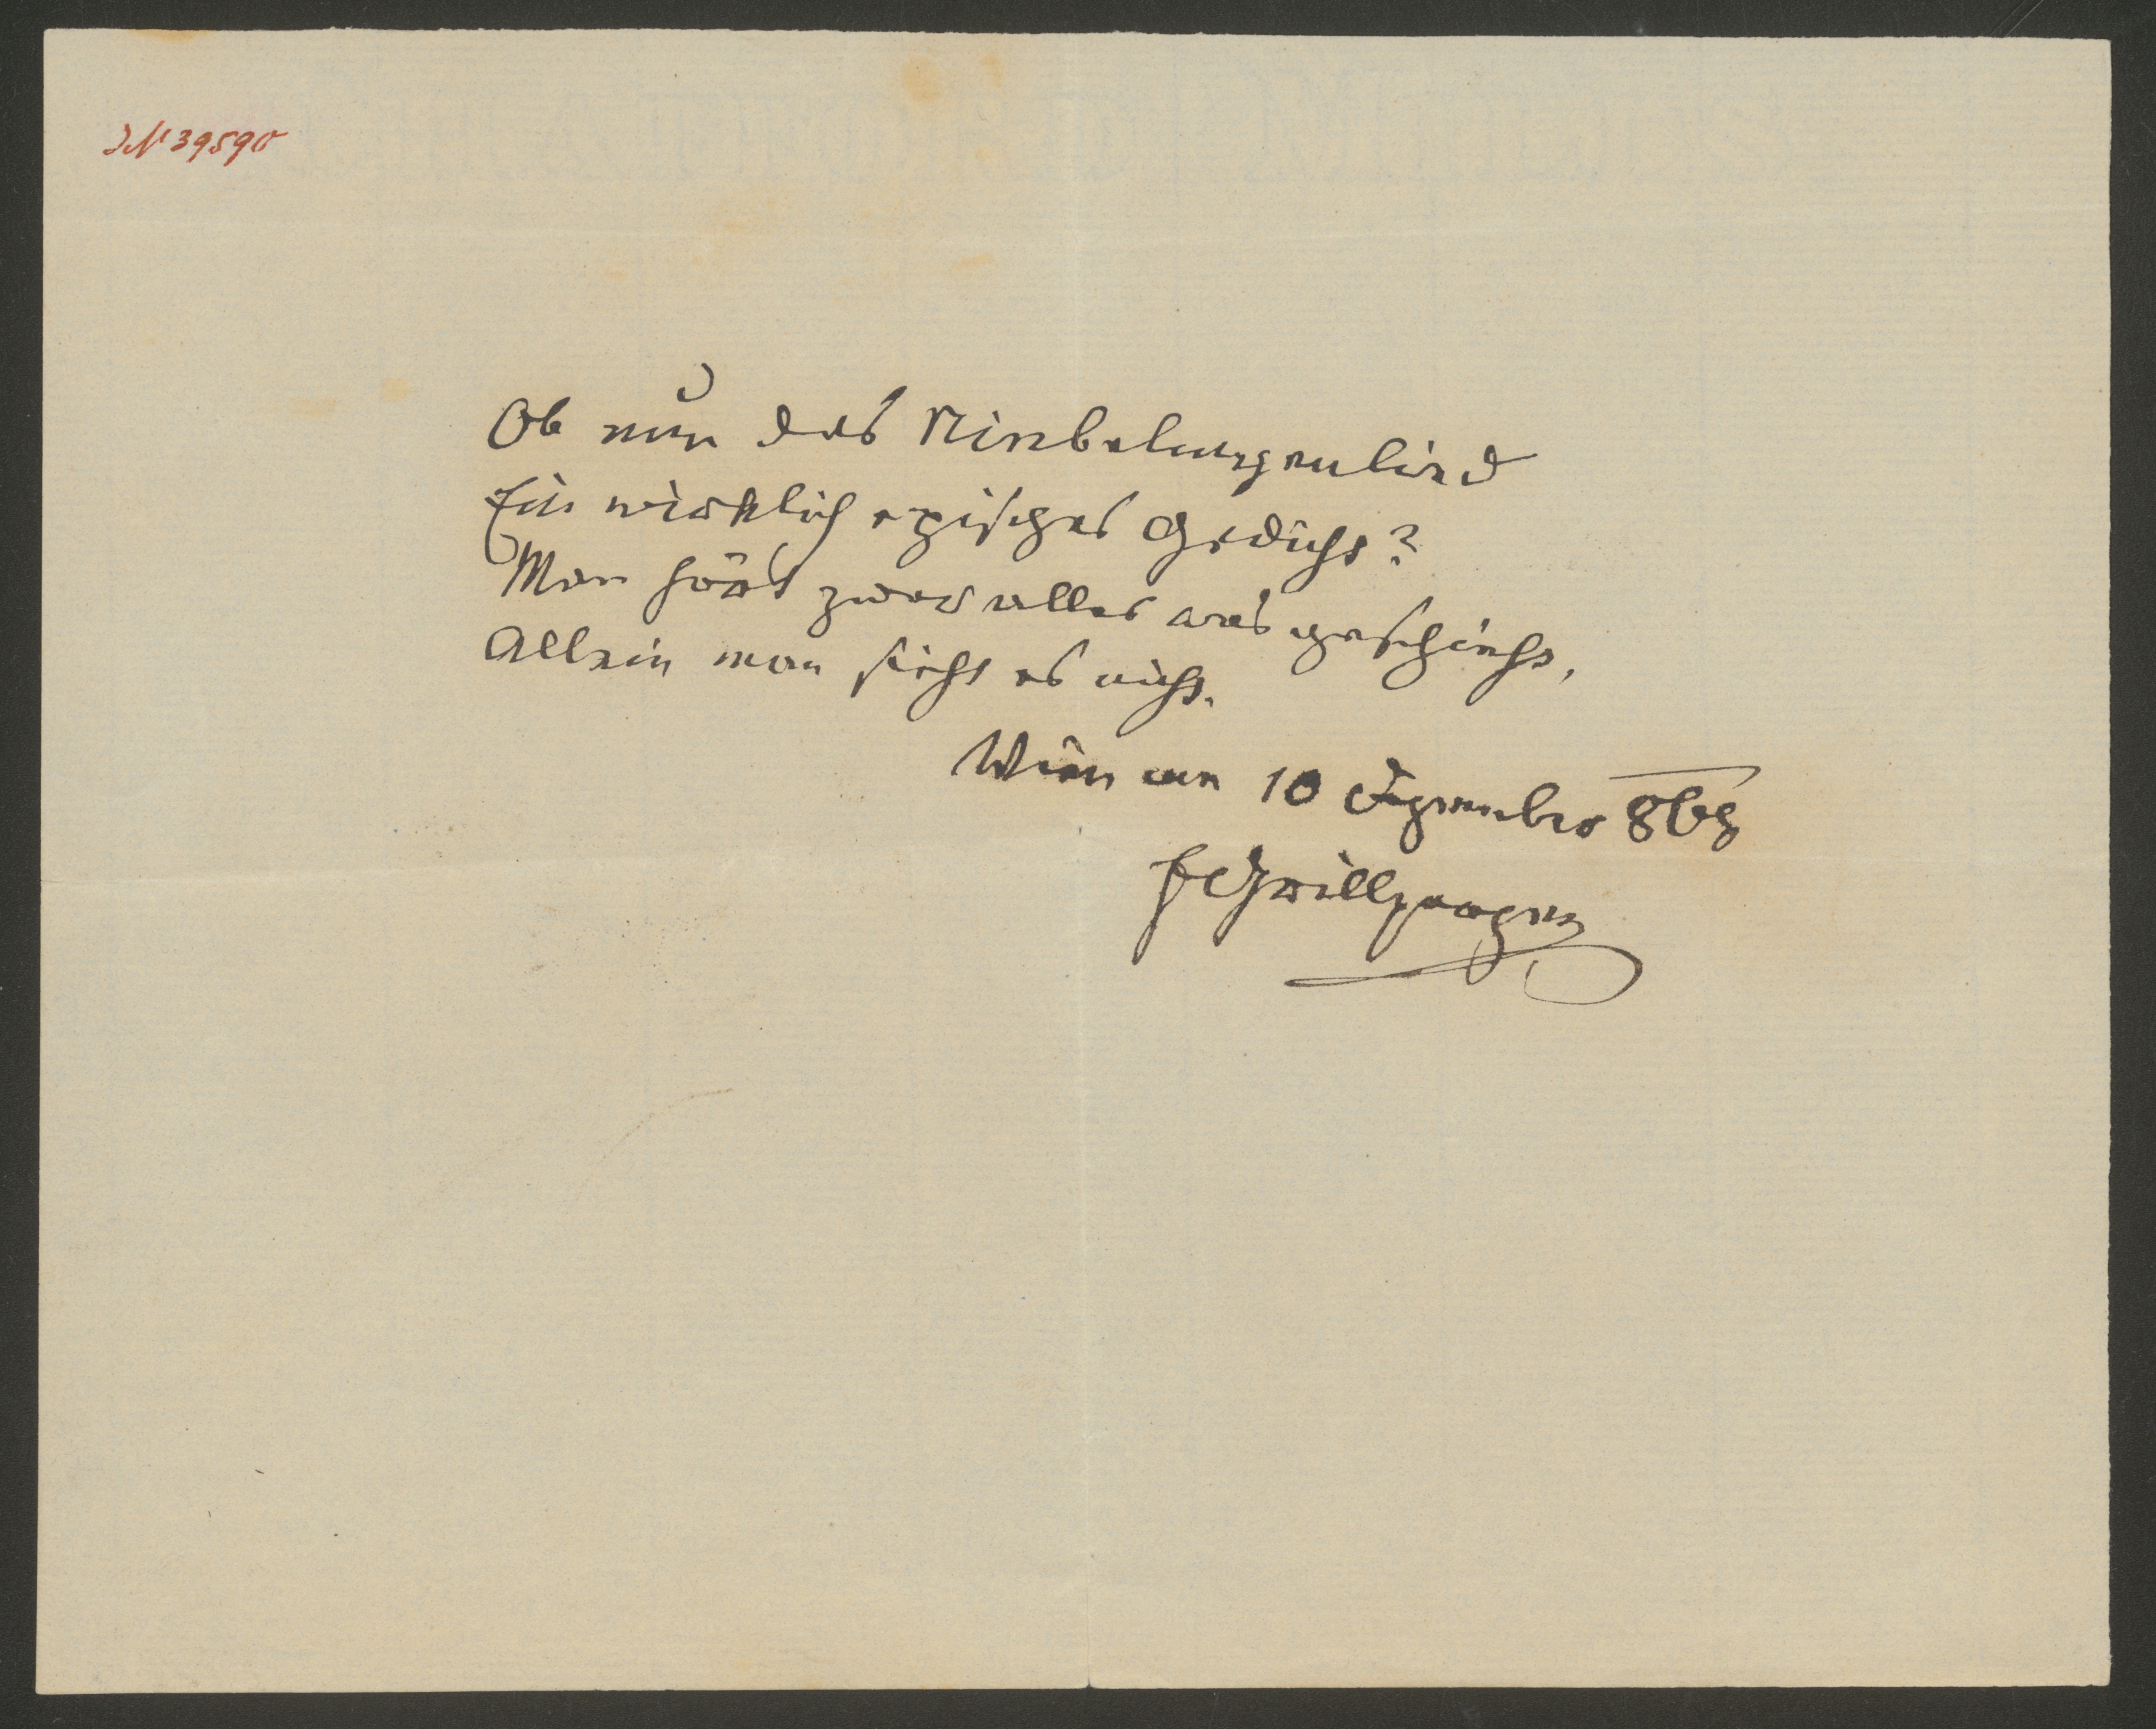 IN 39590
Ob nun das Niebelungenlied
Ein wirklich episches Gedicht?
Man hört zwar alles was geschieht,
Allein man sieht es nicht.
Wien am 10 Dezember 868
FGrillparzer